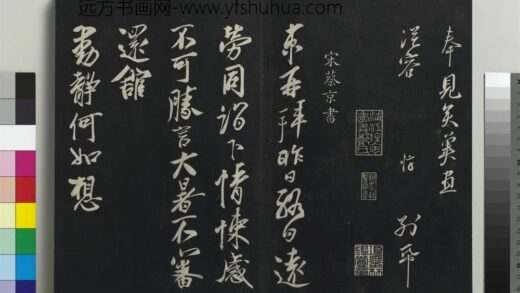 远方书画网-www.yfshuhua.com
奉見矣冀
從容
别帋
宋蔡京書
京再拜昨日終日遠
勞同詣下情悚感
不可勝言大暑不審
還館
動靜何如想